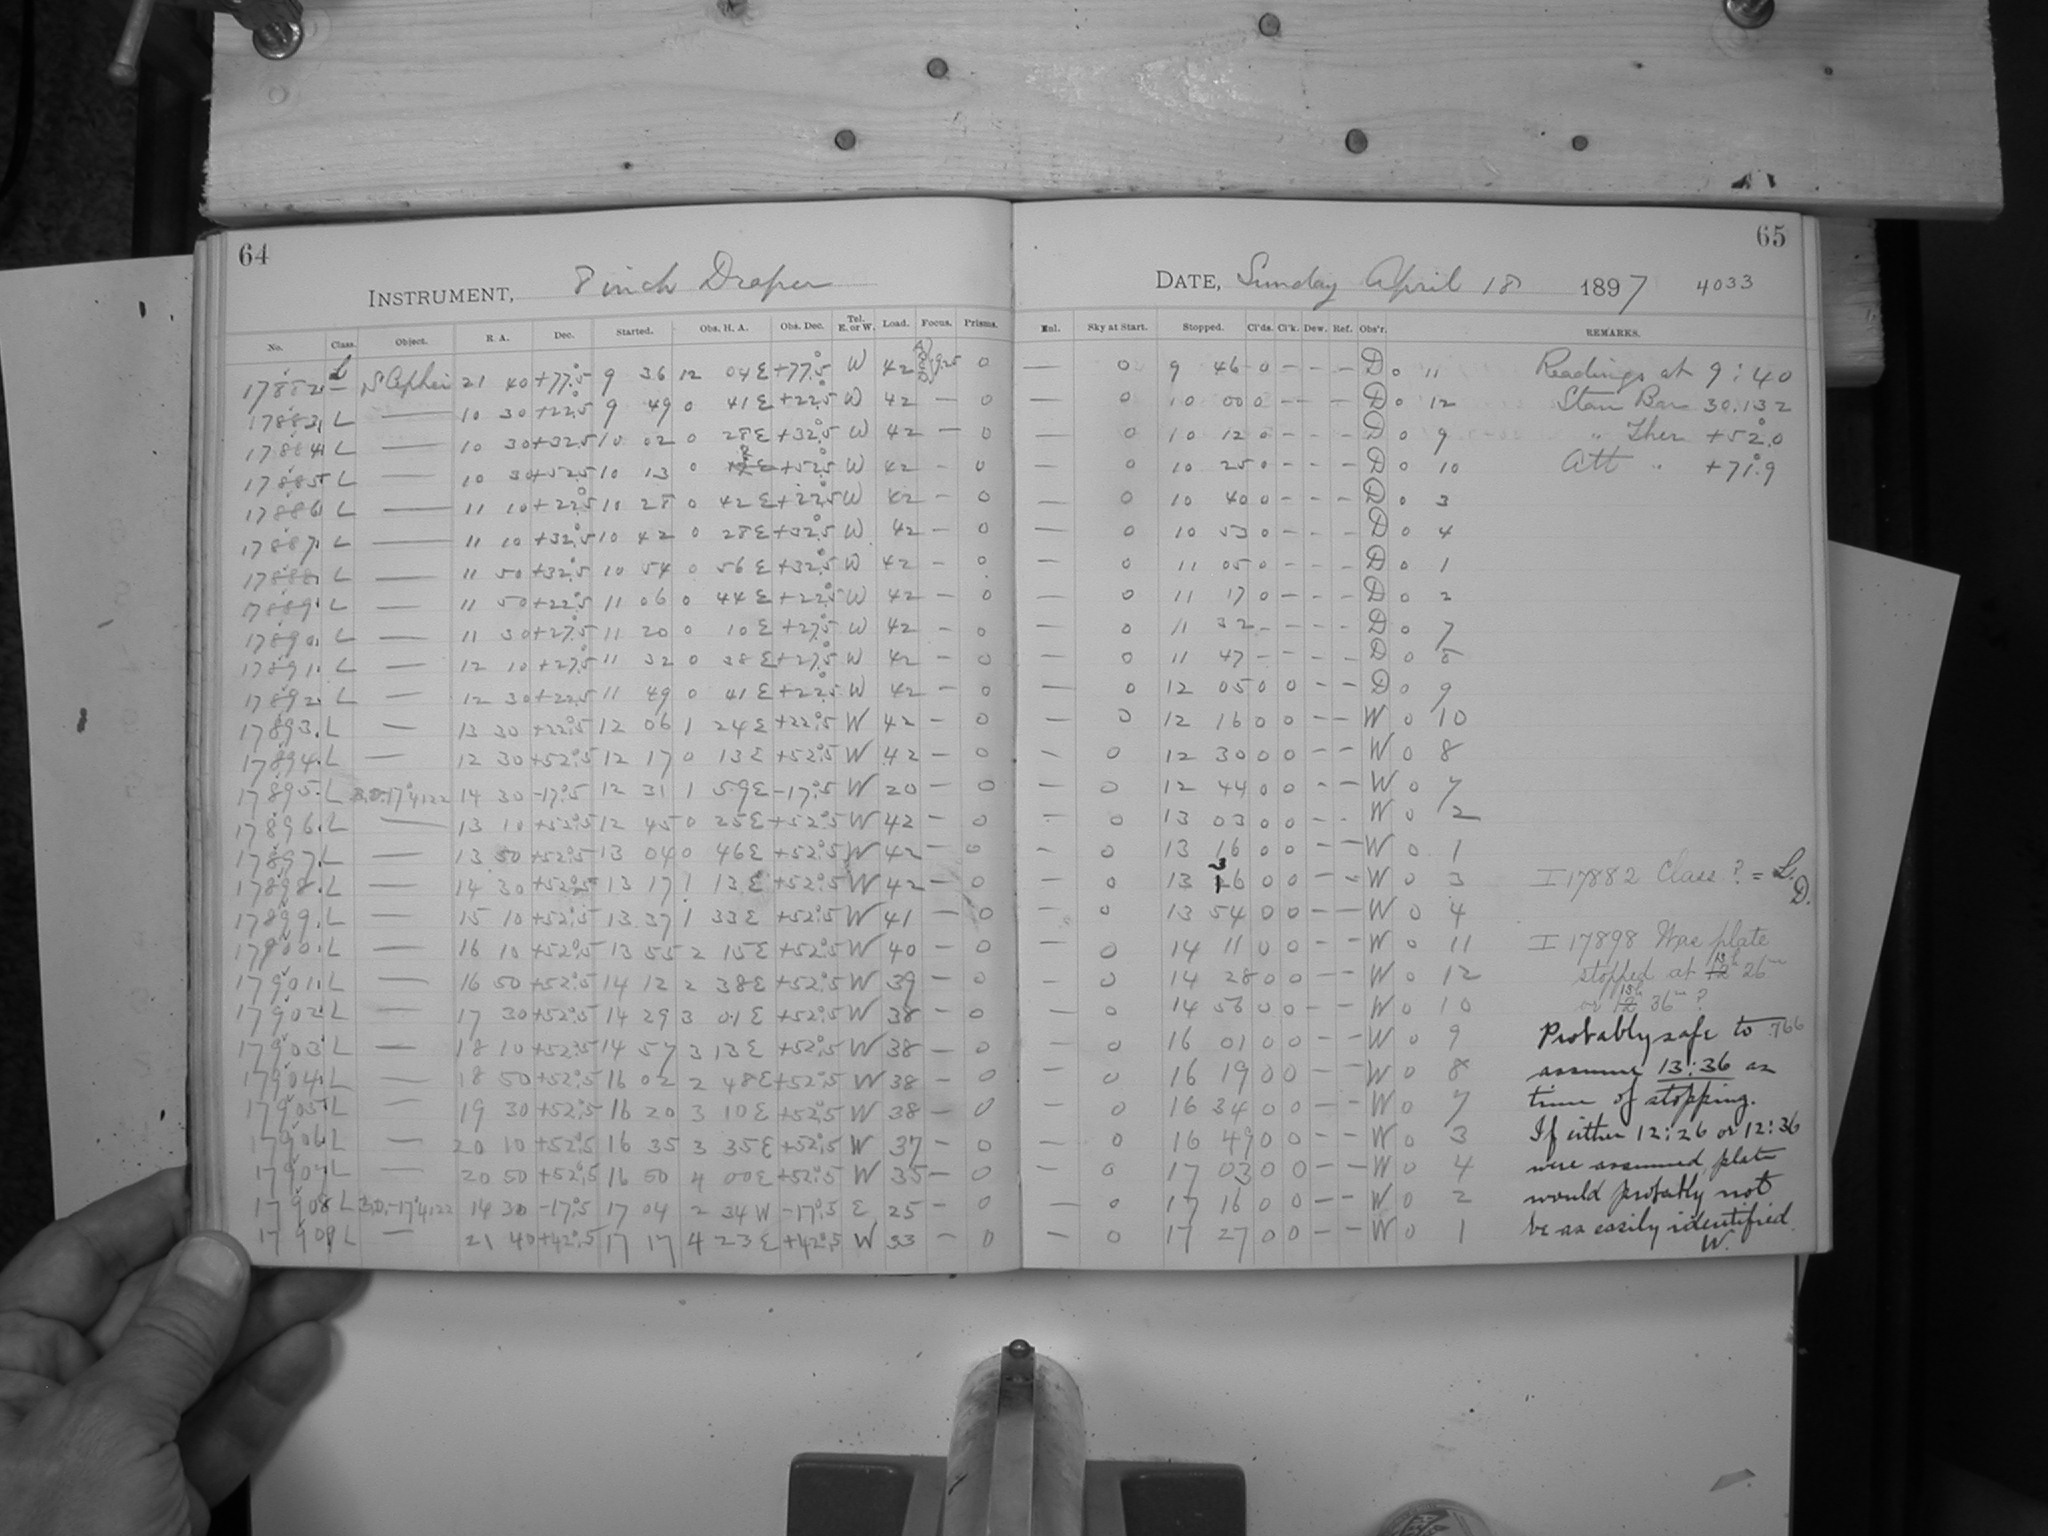 64
INSTRUMENT, 8 inch Draper
No. Class. Object. R. A. Dec. Started. Obs. H. A. Obs. Dec. Tel. E. or W. Load. Focus. Prisms.
17882 L S Cephei 21 40 +77°.5 9 36 12 04 E +77°.5 W 42 9.25 0
17883 L — 10 30 +22°.5 9 49 0 41 E +22°.5 W 42 — 0
17884 L — 10 30 +32.5 10 02 0 28 E +32°.5 W 42 — 0
17885 L — 10 30 +52.5 10 13 0 +52°.5 W 42 — 0
17886 L — 11 10 +22°.5 10 28 0 42 E +22°.5 W 42 — 0
17887 L — 11 10 +32°.5 10 42 0 28 E +32°.5 W 42 — 0
17888 L — 11 50 +32°.5 10 54 0 56 E +32°.5 W 42 — 0
17889 L — 11 50 +22°.5 11 06 0 44 E +22°.5 W 42 — 0
17890 L — 11 30 +27°.5 11 20 0 10 E +27°.5 W 42 — 0
17891 L — 12 10 +27°.5 11 32 0 38 E +27°.5 W 42 — 0
17892 L — 12 30 +22.5 11 49 0 41 E +22°.5 W 42 — 0
17893 L — 13 30 +22°.5 12 06 1 24 E +22°.5 W 42 — 0
17894 L — 12 30 +52°.5 12 17 0 13 E +52°.5 W 42 — 0
17895 L B.D.-17°4122 14 30 -17°.5 12 31 1 59 E -17°.5 W 20 — 0
17896 L — 13 10 +52°.5 12 45 0 25 E +52°.5 W 42 — 0
17897 L — 13 50 +52°.5 13 04 0 46 E +52°.5 W 42 — 0
17898 L — 14 30 +52°.5 13 17 1 13 E +52°.5 W 42 — 0
17899 L — 15 10 +52°.5 13 37 1 33 E +52°.5 W 41 — 0
17900 L — 16 10 +52°.5 13 55 2 15 E +52°.5 W 40 — 0
17901 L — 16 50 +52°.5 14 12 2 38 E +52°.5 W 39 — 0
17902 L — 17 30 +52°.5 14 29 3 01 E +52°.5 W 38 — 0
17903 L — 18 10 +52°.5 14 57 3 13 E +52°.5 W 38 — 0
17904 L — 18 50 +52°.5 16 02 2 48 E +52°.5 W 38 — 0
17905 L — 19 30 +52°.5 16 20 3 10 E +52°.5 W 38 — 0
17906 L — 20 10 +52°.5 16 35 3 35 E +52°.5 W 37 — 0
17907 L — 20 50 +52°.5 16 50 4 00 E +52°.5 W 35 — 0
17908 L B.D.-17°4122 14 30 -17°.5 17 04 2 34 W -17°.5 E 25 — 0
17909 L — 21 40 +42°.5 17 17 4 23 E +42°.5 W 33 — 0
65
DATE, Sunday April 18 1897 4033
Enl. Sky at Start. Stopped. Cl'ds. Cl'k. Dew. Ref. Obs'r. REMARKS.
— 0 9 46 0 – – – D 0 11 Readings at 9:40
— 0 10 00 0 – – – D 0 12 Stan Bar 30.132
— 0 10 12 0 – – – D 0 9 " Ther +52°.0
— 0 10 25 0 – – – D 0 10 Att " +71°.9
— 0 10 40 0 – – – D 0 3
— 0 10 53 0 – – – D 0 4
— 0 11 05 0 – – – D 0 1
— 0 11 17 0 – – – D 0 2
— 0 11 32 – – – – D 0 7
— 0 11 47 – – – – D 0 8
— 0 12 05 0 0 – – D 0 9
— 0 12 16 0 0 – – W 0 10
– 0 12 30 0 0 – – W 0 8
– 0 12 44 0 0 – – W 0 7
– 0 13 03 0 0 – – W 0 2
– 0 13 16 0 0 – – W 0 1
– 0 13 36 0 0 – – W 0 3 I 17882 Class? = L. D.
– 0 13 54 0 0 – – W 0 4
– 0 14 11 0 0 – – W 0 11 I 17898 Was plate
– 0 14 28 0 0 – – W 0 12 stopped at 13h 26m
– 0 14 56 0 0 – – W 0 10 or 13h 36m?
– 0 16 01 0 0 – – W 0 9 Probably safe to 766
– 0 16 19 0 0 – – W 0 8 assume 13:36 as
– 0 16 34 0 0 – – W 0 7 time of stopping.
– 0 16 49 0 0 – – W 0 3 If either 12:26 or 12:36
– 0 17 03 0 0 – – W 0 4 were assumed plate
– 0 17 16 0 0 – – W 0 2 would probably not
– 0 17 27 0 0 – – W 0 1 be as easily identified.
W.